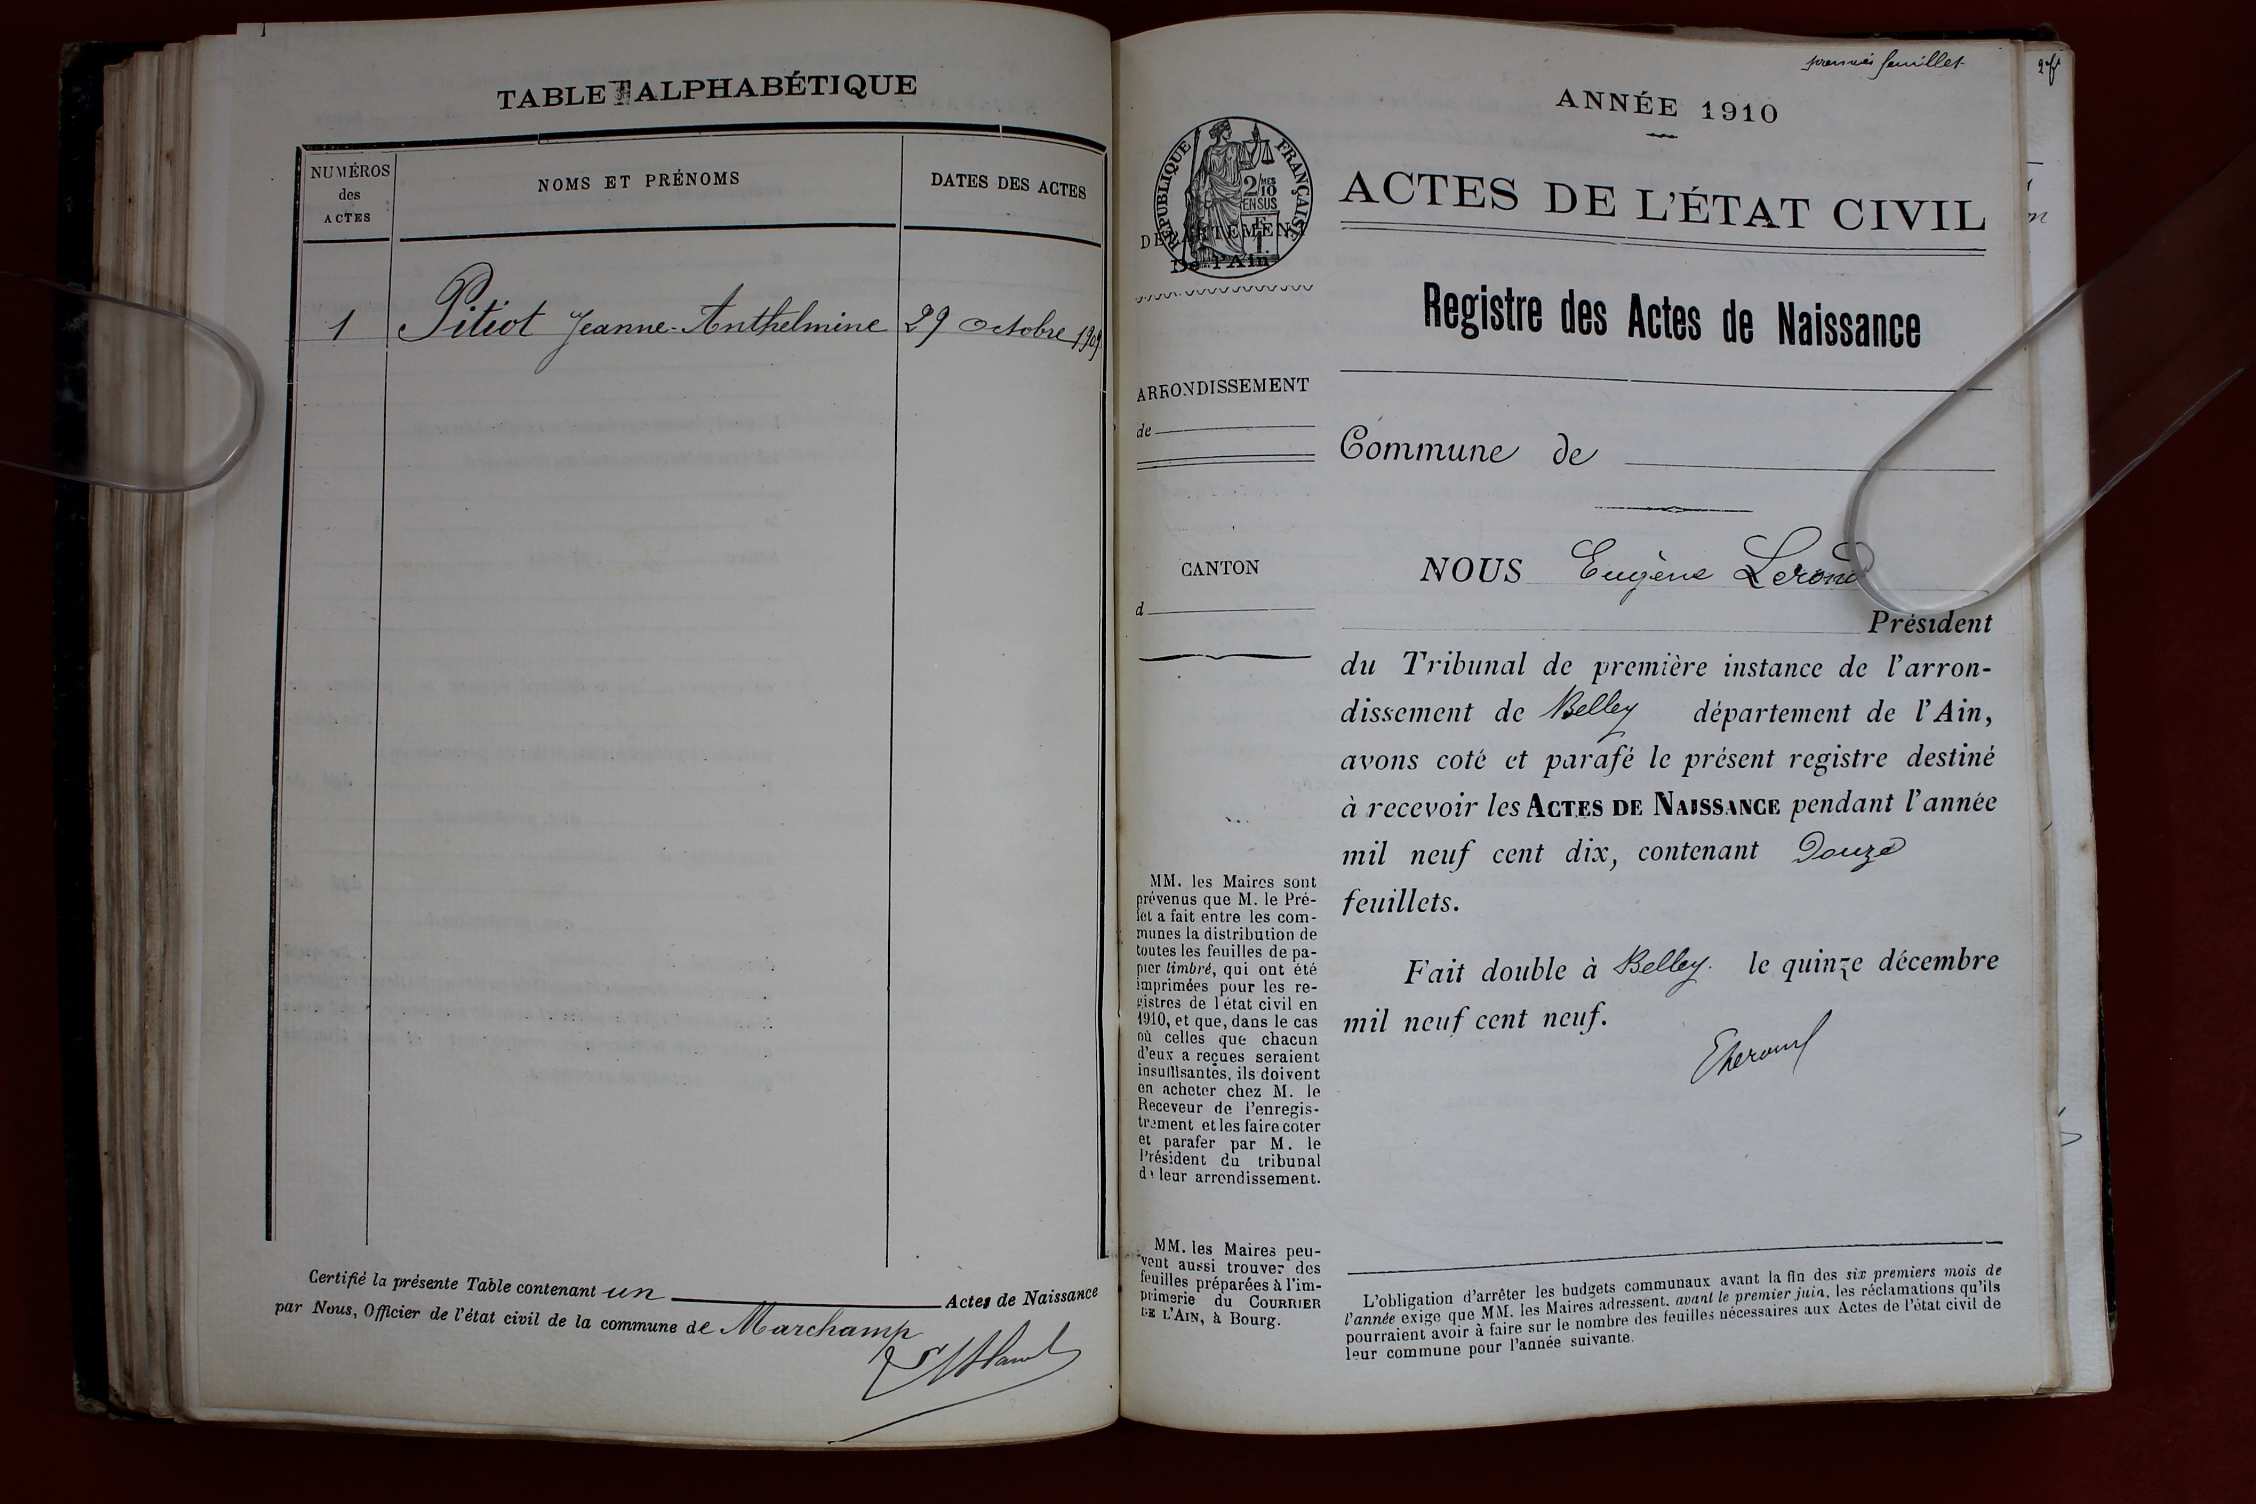 TABLE ALPHABÉTIQUE
NUMÉROS
des
ACTES
NOMS ET PRÉNOMS
DATES DES ACTES
1 Pitiot Jeanne-Anthelmine 29 octobre 1909
Certifié la présente Table contenant un Actes de Naissance
par Nous, Officier de l'état civil de la commune de Marchamp
premier feuillet
ANNÉE 1910
RÉPUBLIQUE FRANÇAISE
2/10
MES
EN SUS
DÉPARTEMENT
De l'Ain
ACTES DE L'ÉTAT CIVIL
Registre des Actes de Naissance
ARRONDISSEMENT
de
Commune de
CANTON
d
NOUS Eugène Lerond
Président
du Tribunal de première instance de l'arron-
dissement de Belley département de l'Ain,
avons coté et parafé le présent registre destiné
à recevoir les ACTES DE NAISSANCE pendant l'année
mil neuf cent dix, contenant Douze
feuillets.
Fait double à Belley. le quinze décembre
mil neuf cent neuf.
MM. les Maires sont
prévenus que M. le Pré-
fet a fait entre les com-
munes la distribution de
toutes les feuilles de pa-
pier timbré, qui ont été
imprimées pour les re-
gistres de l'état civil en
1910, et que, dans le cas
où celles que chacun
d'eux a reçues seraient
insuffisantes, ils doivent
en acheter chez M. le
Receveur de l'enregis-
trement et les faire coter
et parafer par M. le
Président du tribunal
de leur arrondissement.
MM. les Maires peu-
vent aussi trouver des
feuilles préparées à l'im-
primerie du COURRIER
DE L'AIN, à Bourg.
L'obligation d'arrêter les budgets communaux avant la fin des six premiers mois de
l'année exige que MM. les Maires adressent, avant le premier juin, les réclamations qu'ils
pourraient avoir à faire sur le nombre des feuilles nécessaires aux Actes de l'état civil de
leur commune pour l'année suivante.